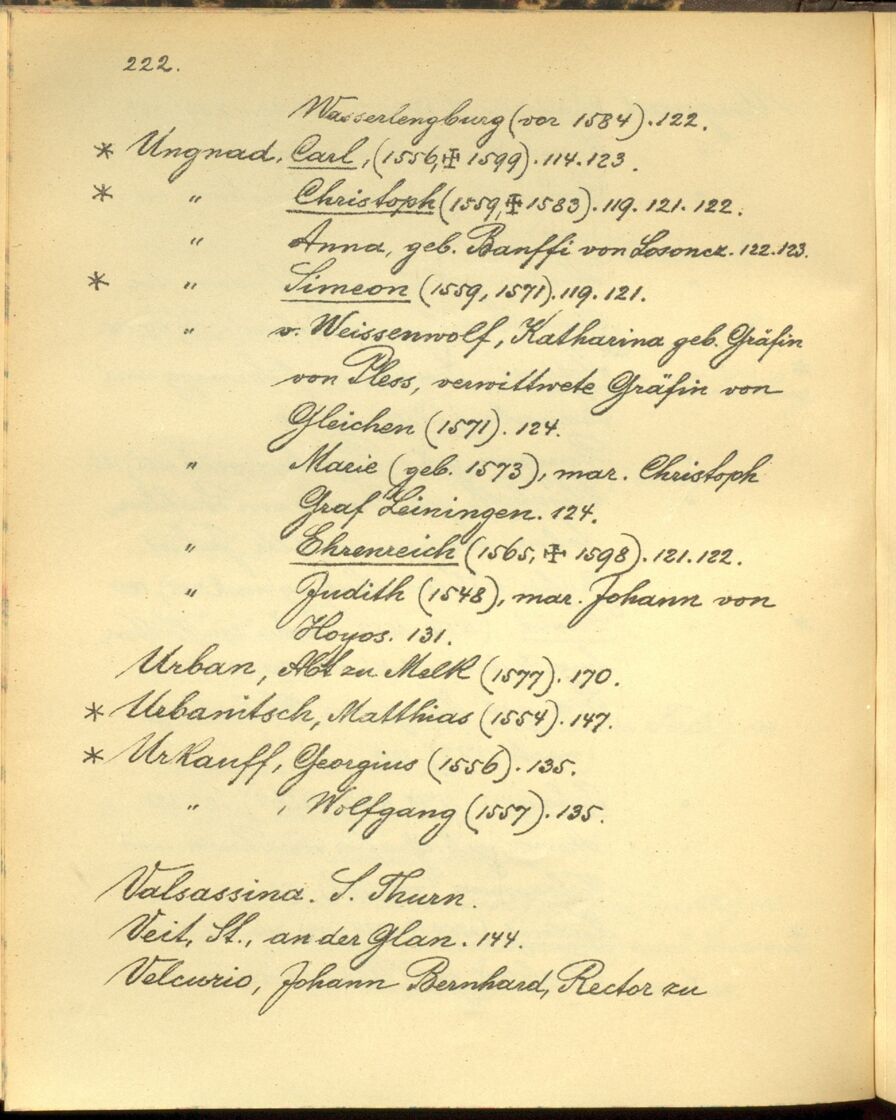 222.
Wasserlengburg (vor 1584). 122.
* Ungnad, Carl, (1556, ✠ 1599). 114. 123.
* " Christoph (1559, ✠ 1583). 119. 121. 122.
" Anna, geb. Banffi von Losoncz. 122. 123.
* " Simeon (1559, 1571). 119. 121.
" v. Weissenwolf, Katharina geb. Gräfin
von Pless, verwittwete Gräfin von
Gleichen (1571). 124.
" Marie (geb. 1573), mar. Christoph
Graf Leiningen. 124.
" Ehrenreich (1565, ✠ 1598). 121. 122.
" Judith (1548), mar. Johann von
Hoyos. 131.
Urban, Abt zu Melk (1577). 170.
* Urbanitsch, Matthias (1554). 147.
* Urkauff, Georgius (1556). 135.
" , Wolfgang (1557). 135.
Valsassina. S. Thurn.
Veit, St., an der Glan. 144.
Velcurio, Johann Bernhard, Rector zu